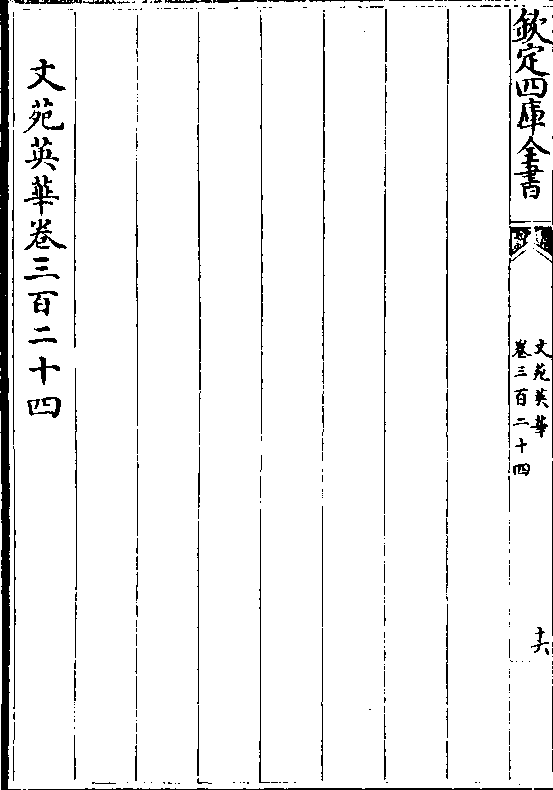 欽定四庫全書
文苑英華
卷三百二十四
十六
文苑英華卷三百二十四